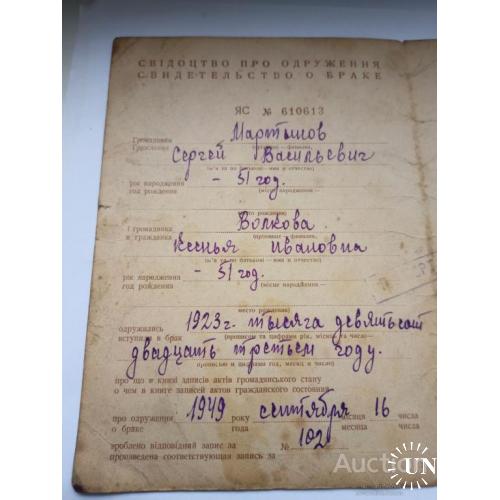 СВІДОЦТВО ПРО ОДРУЖЕННЯ
СВИДЕТЕЛЬСТВО О БРАКЕ
ЯС № 610613
Громадянин
Гражданин
Мартышов
Сергей Васильевич
(ім'я та по батькові — имя и отчество)
рік народження
год рождения
– 51 год.
место рождения)
і громадянка
и гражданка
Волкова
Ксенья Ивановна
(ім'я та по батькові — имя и отчество)
рік народження
год рождения
– 51 год.
место рождения)
одружились
вступили в брак
1923 г. тысяга девятьсот
(прописом та цифрами рік, місяць та число —
двадцать третьем году.
прописью и цифрами год, месяц и число)
про що в книзі записів актів громадянського стану
о чем в книге записей актов гражданского состояния
про одруження
о браке
1949 року сентября 16 числа
года месяца числа
зроблено відповідний запис за
произведена соответствующая запись за
№ 102
Auction
UN